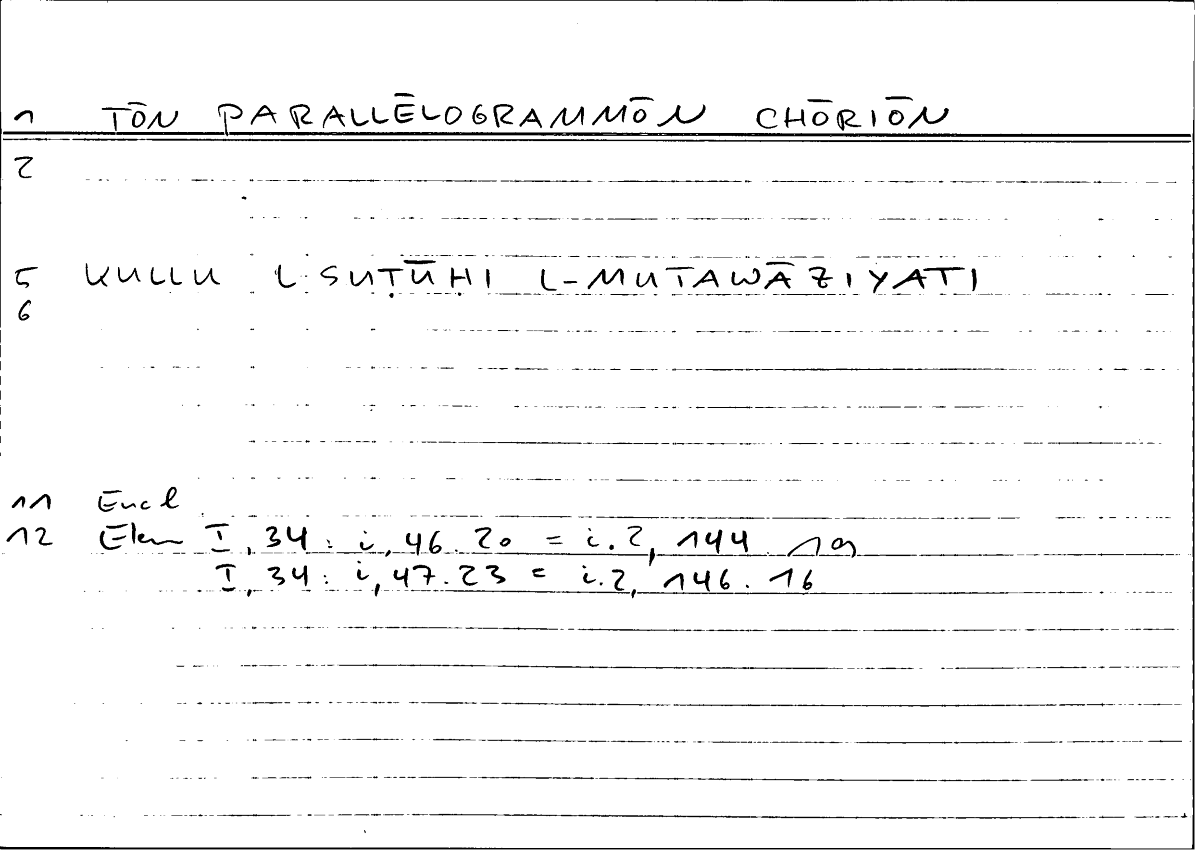 1 TŌN PARALLĒLOGRAMMŌN CHŌRIŌN
2
5 KULLU L-SUṬŪḤI L-MUTAWĀZIYATI
6
11 Eucl
12 Elem I, 34: i, 46.20 = i.2, 144.19
I, 34: i, 47.23 = i.2, 146.16